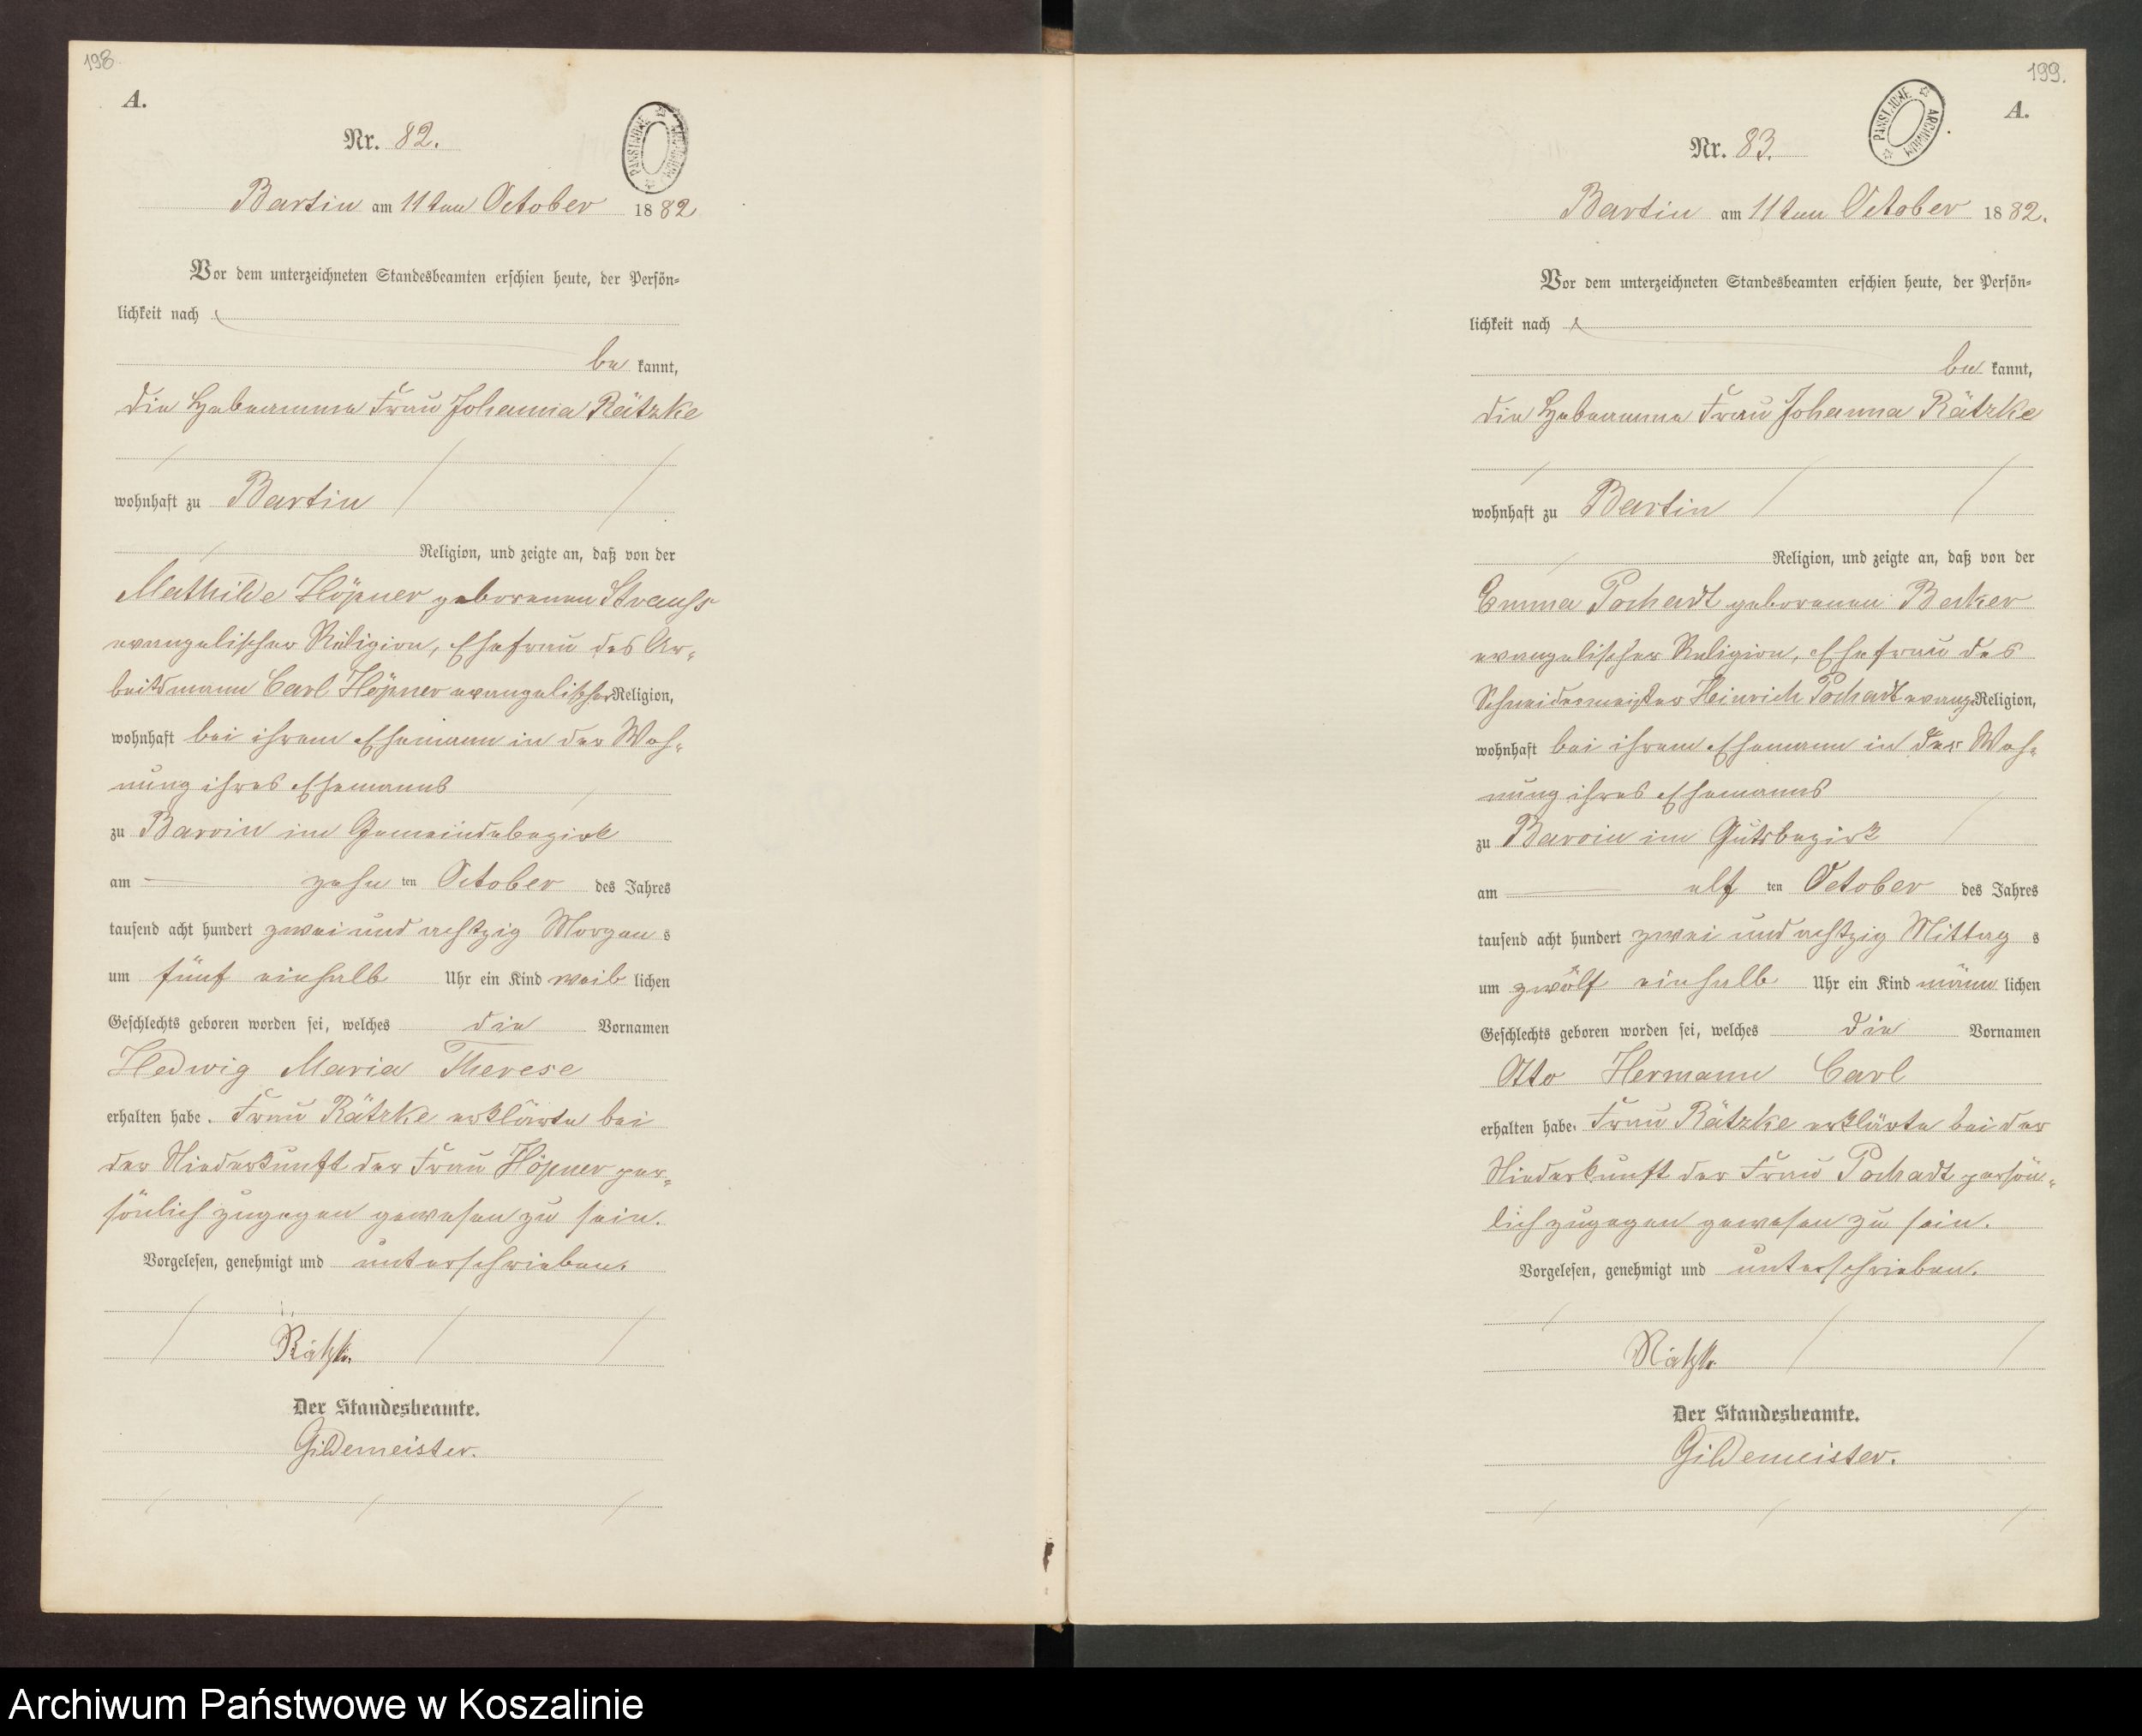 198.
A.
PAŃSTWOWE ARCHIWUM
Nr. 82.
Bartin am 11ten October 1882
Vor dem unterzeichneten Standesbeamten erschien heute, der Persön-
lichkeit nach
be kannt,
die Hebeamme Frau Johanna Rätzke
wohnhaft zu Bartin
Religion, und zeigte an, daß von der
Mathilde Höpner geborenen Strauss
evangelischer Religion, Ehefrau des Ar-
beitsmann Carl Höpner evangelischer Religion,
wohnhaft bei ihrem Ehemann in der Woh-
nung ihres Ehemanns
zu Barvin im Gemeindebezirk
am zehn ten October des Jahres
tausend acht hundert zwei und achtzig Morgen s
um fünf einhalb Uhr ein Kind weib lichen
Geschlechts geboren worden sei, welches die Vornamen
Hedwig Maria Therese
erhalten habe. Frau Rätzke erklärte bei
der Niederkunft der Frau Höpner per-
sönlich zugegen gewesen zu sein.
Vorgelesen, genehmigt und unterschrieben.
Rätzke
Der Standesbeamte.
Gildemeister.
199.
A.
PAŃSTWOWE ARCHIWUM
Nr. 83.
Bartin am 11ten October 1882.
Vor dem unterzeichneten Standesbeamten erschien heute, der Persön-
lichkeit nach
be kannt,
die Hebeamme Frau Johanna Rätzke
wohnhaft zu Bartin
Religion, und zeigte an, daß von der
Emma Pochadt geborenen Becker
evangelischer Religion, Ehefrau des
Schneidermeister Heinrich Pochadt evang. Religion,
wohnhaft bei ihrem Ehemann in der Woh-
nung ihres Ehemanns
zu Barvin im Gutsbezirk
am elf ten October des Jahres
tausend acht hundert zwei und achtzig Mittag s
um zwölf einhalb Uhr ein Kind männ lichen
Geschlechts geboren worden sei, welches die Vornamen
Otto Hermann Carl
erhalten habe. Frau Rätzke erklärte bei der
Niederkunft der Frau Pochadt persön-
lich zugegen gewesen zu sein.
Vorgelesen, genehmigt und unterschrieben.
Rätzke
Der Standesbeamte.
Gildemeister.
Archiwum Państwowe w Koszalinie